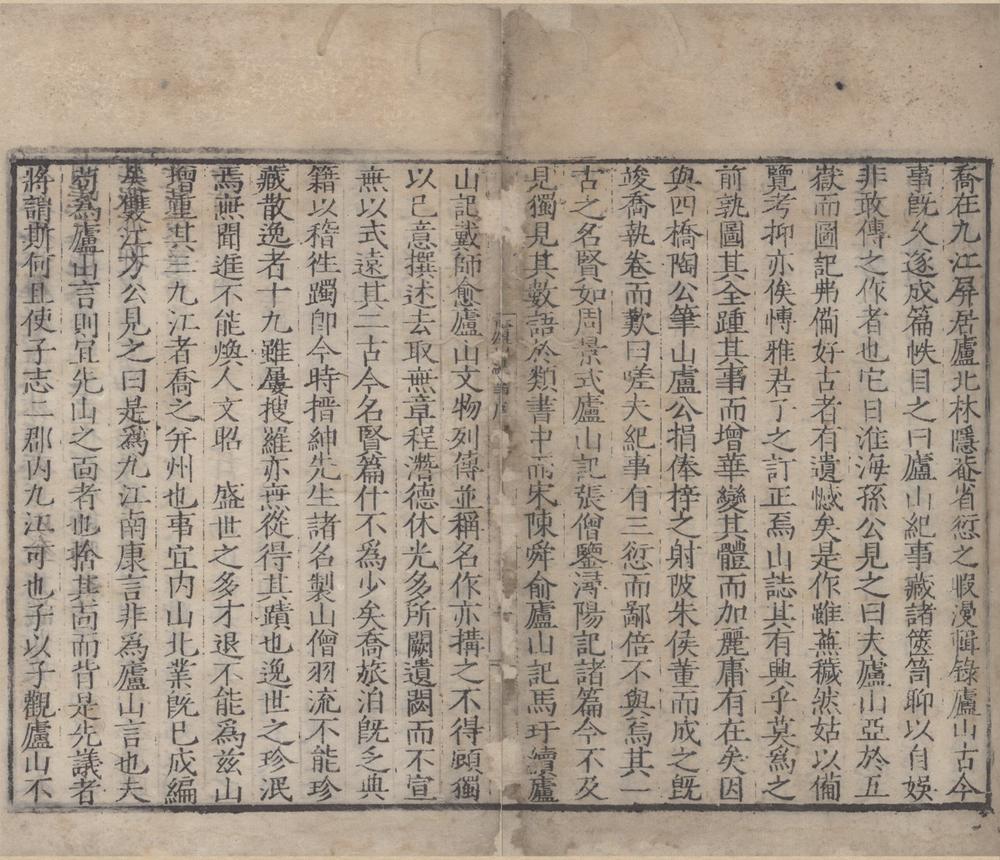 喬在九江屏居廬北林隱菴省愆之暇漫輯錄廬山古今
事旣久遂成篇帙目之曰廬山紀事藏諸篋笥聊以自娛
非敢傳之作者也它日淮海孫公見之曰夫廬山亞於五
嶽而圖記弗備好古者有遺憾矣是作雖蕪穢然姑以備
覽考抑亦俟愽雅君子之訂正焉山誌其有興乎莫爲之
前孰圖其全踵其事而增華變其體而加麗庸有在矣因
與四橋陶公筆山盧公捐俸梓之射陂朱侯董而成之旣
竣喬執卷而歎曰嗟夫紀事有三愆而鄙倍不與焉其一
古之名賢如周景式廬山記張僧鑒潯陽記諸篇今不及
見獨見其數語於類書中而宋陳舜俞廬山記馬玗續廬
山記戴師愈廬山文物列傳並稱名作亦搆之不得頋獨
以己意撰述去取無章程潛德休光多所闕遺闕而不宣
無以式遠其二古今名賢篇什不爲少矣喬旅泊旣乏典
籍以稽徃躅卽今時搢紳先生諸名製山僧羽流不能珍
藏散逸者十九雖屢搜羅亦無從得其蹟也逸世之珍泯
焉無聞進不能煥人文昭 盛世之多才退不能爲玆山
增重其三九江者喬之幷州也事宜內山北業旣巳成編
方公見之曰是爲九江南康言非爲廬山言也夫
苟爲廬山言則宜先山之面者也捨其靣而背是先議者
將謂斯何且使子志二郡内九江可也子以子觀廬山不